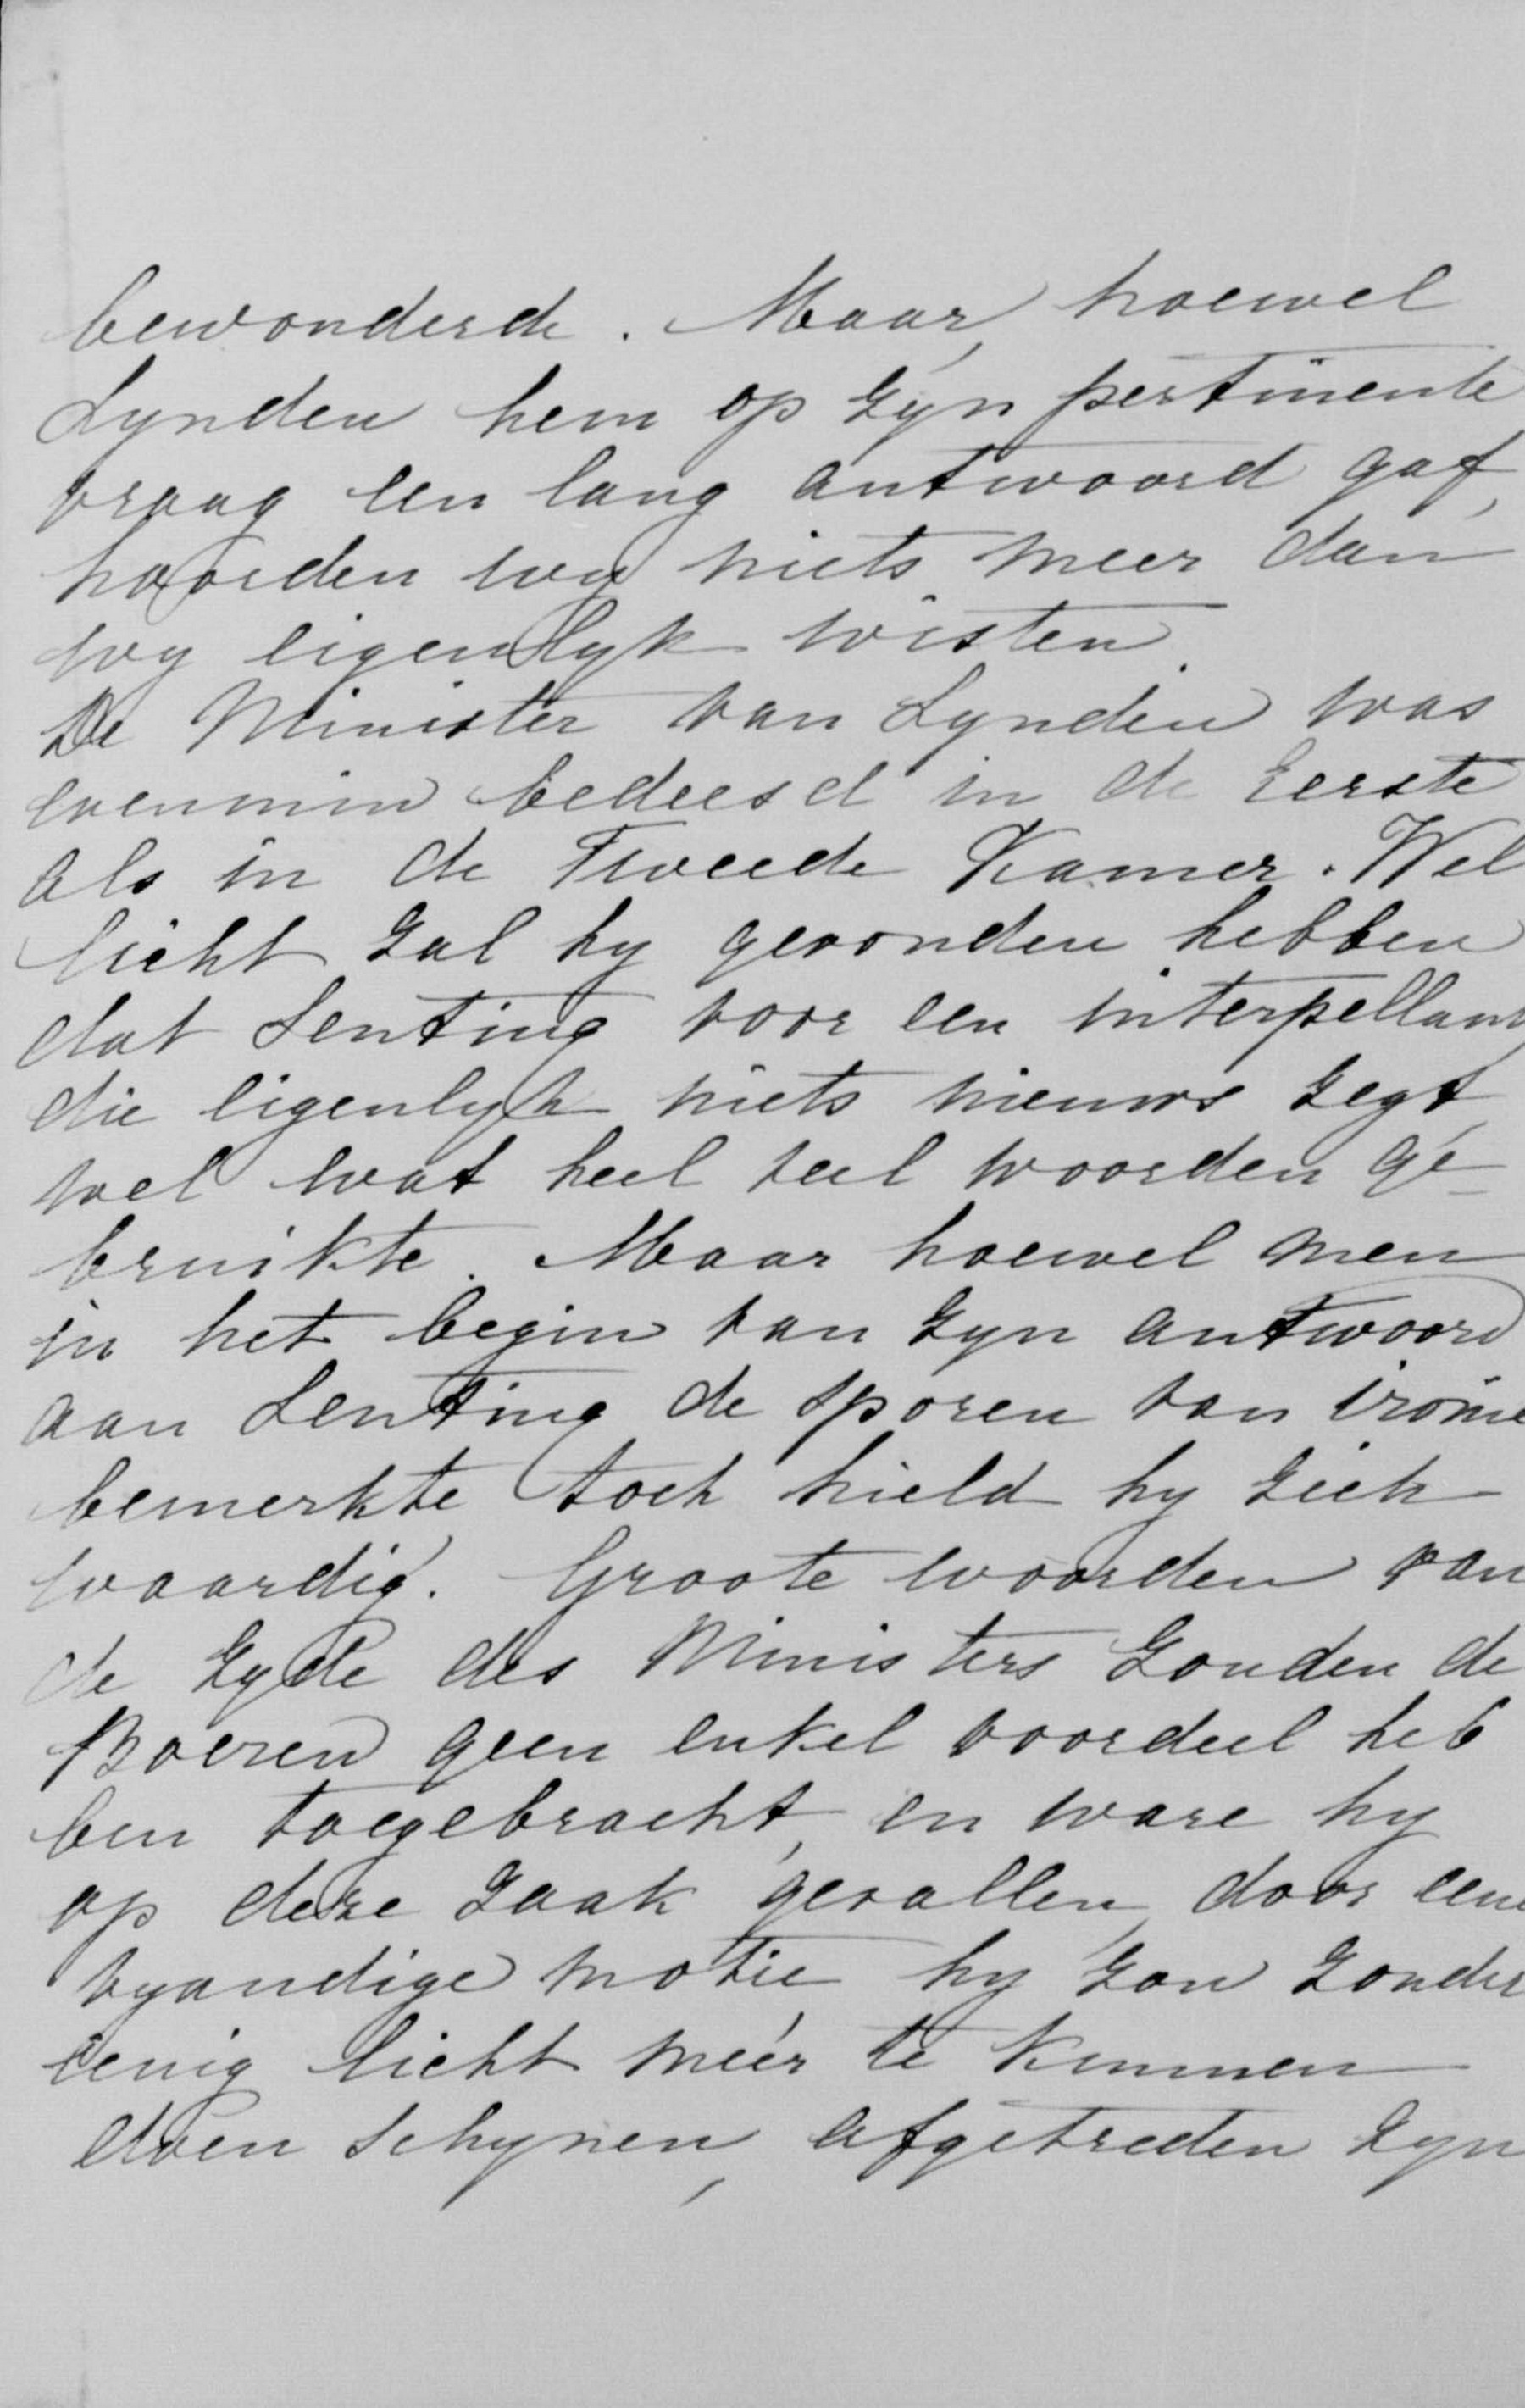 bewonderde. Maar, hoewel
Lynden hem op zyn pertinente
vraag een lang antwoord gaf,
hoorden wy niets meer dan
wy eigenlyk wisten.
De Minister van Lynden was
evenmin bedeesd in de Eerste
als in de Tweede Kamer. Wel
licht zal hy gevonden hebben
dat Lenting voor een interpellant,
die eigenlyk niets nieuws zegt,
wel wat heel veel woorden ge-
bruikte. Maar hoewel men
in het begin van zyn antwoord
aan Lenting de sporen van ironie
bemerkte toch hield hy zich
waardig. Groote woorden van
de zyde des Ministers zouden de
Boeren geen enkel voordeel heb
ben toegebracht, en ware hy
op deze zaak gevallen, door eene
vyandige motie, hy zou zonder
eenig licht méér te kunnen
doen schynen, afgetreden zyn